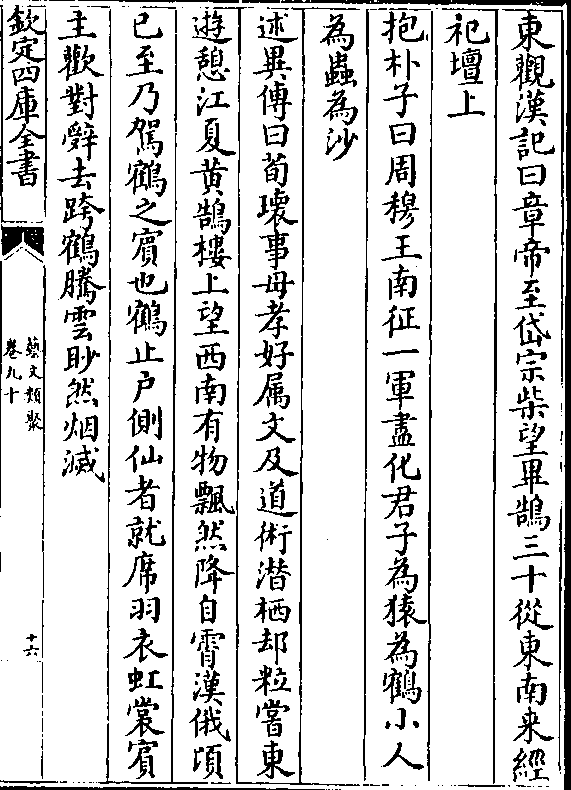 東觀漢記曰章帝至岱宗柴望畢鵠三十從東南来經
祀壇上
抱朴子曰周穆王南征一軍盡化君子為猿為鶴小人
為蟲為沙
述異傳曰荀瓌事母孝好属文及道術潜栖却粒嘗東
遊憩江夏黄鵠樓上望西南有物飄然降自霄漢俄頃
已至乃駕鶴之賓也鶴止户側仙者就席羽衣虹裳賓
主歡對辭去跨鶴騰雲眇然烟滅
欽定四庫全書
藝文類聚
卷九十
十六